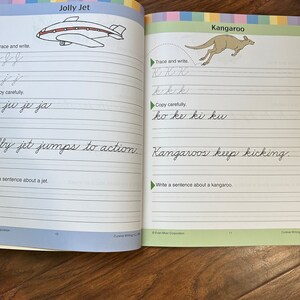 Jolly Jet
Trace and write.
J J
j j
Copy carefully.
ju je ja
Jolly jet jumps to action.
Write a sentence about a jet.
Kangaroo
Trace and write.
K K K
k k k
Copy carefully.
ko ke ki ku
Kangaroos keep kicking.
Write a sentence about a kangaroo.